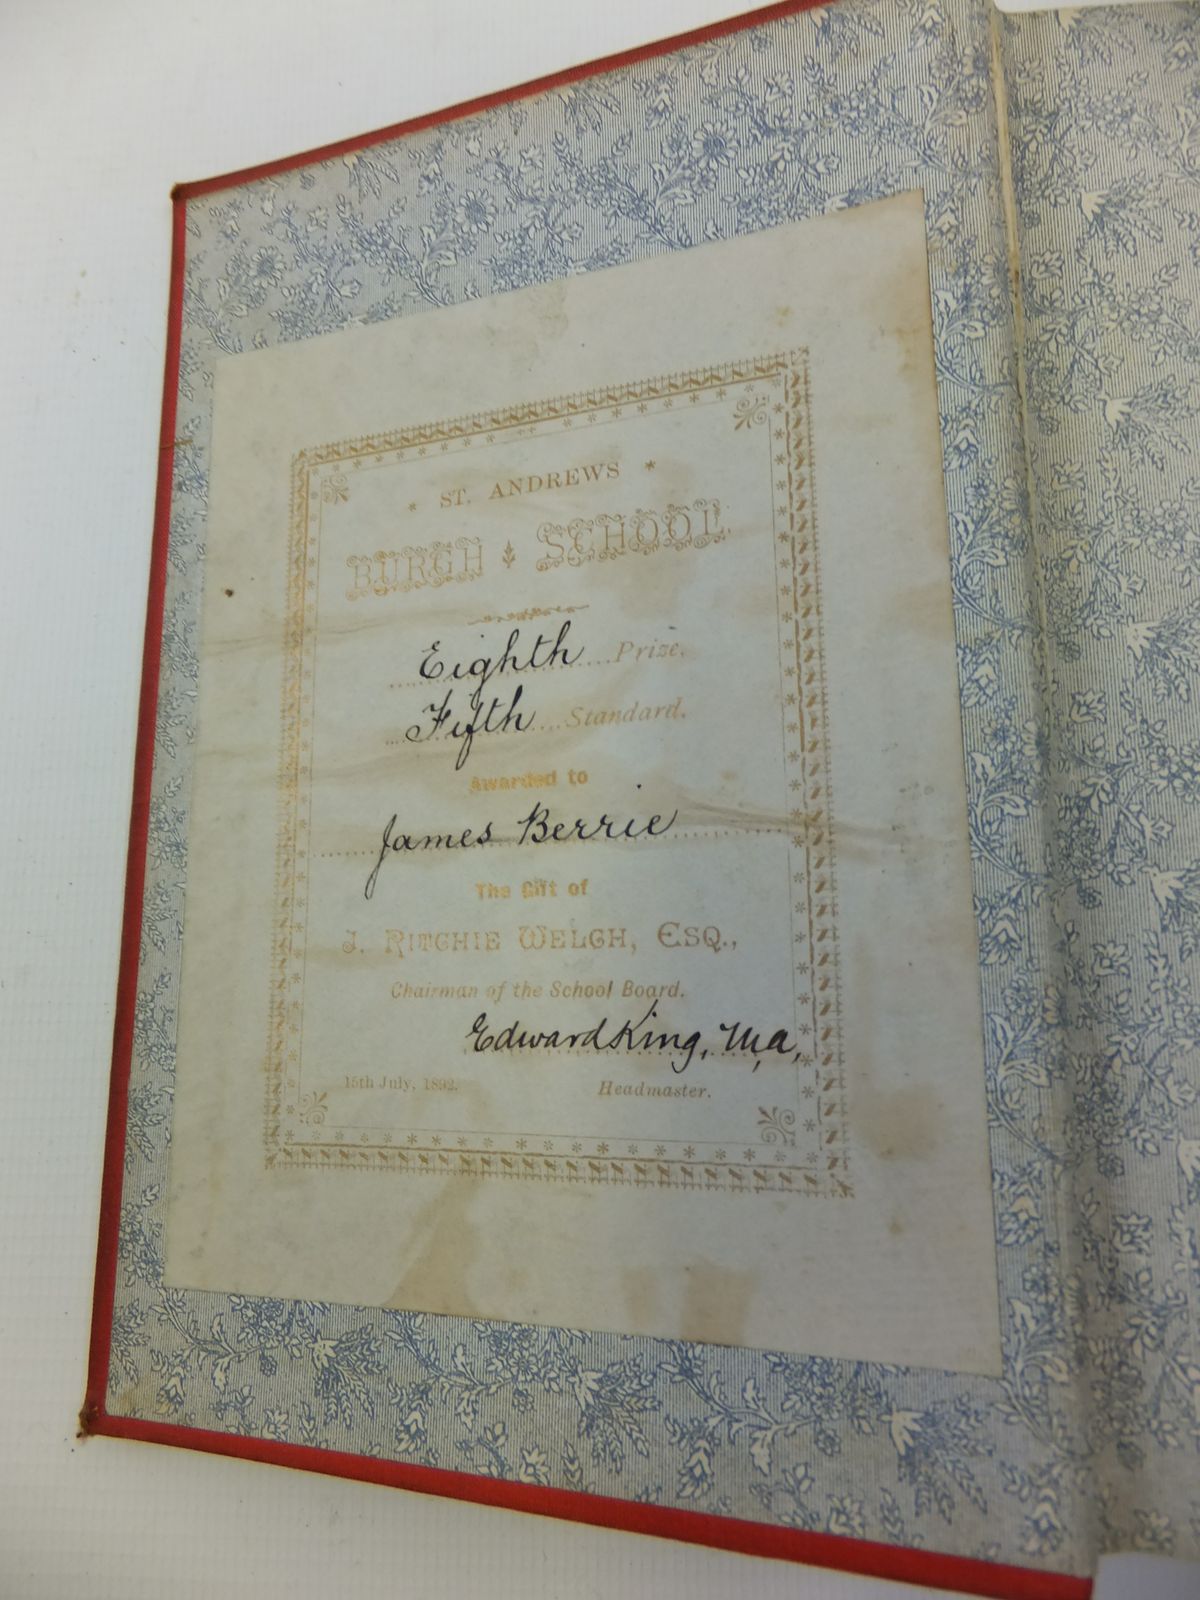 * ST. ANDREWS *
BURGH SCHOOL.
Eighth Prize.
Fifth Standard.
Awarded to
James Berrie
The Gift of
J. RITCHIE WELCH, ESQ.,
Chairman of the School Board.
Edward King, M.A,
15th July, 1892. Headmaster.